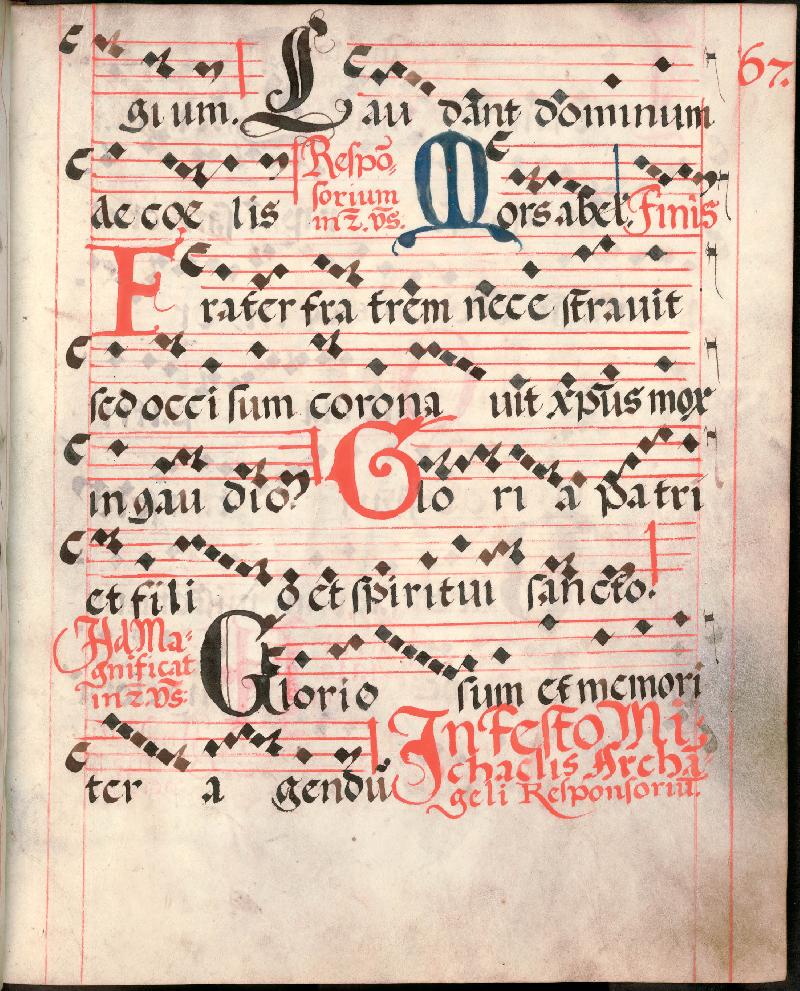 67.
gium. Lau dant dominum
de coe lis Respō-
sorium
in 2. vs. Mors abel. Finis
Frater fra trem nece stravit
sed occi sum corona uit xp̄us mox
in gau dio? Glo ri a patri
et fili o et spiritui sancto.
Ad Ma-
gnificat
in 2. vs. Glorio sum et memori
ter a gendū In Festo Mi-
chaelis Archā-
geli Responsoriū.